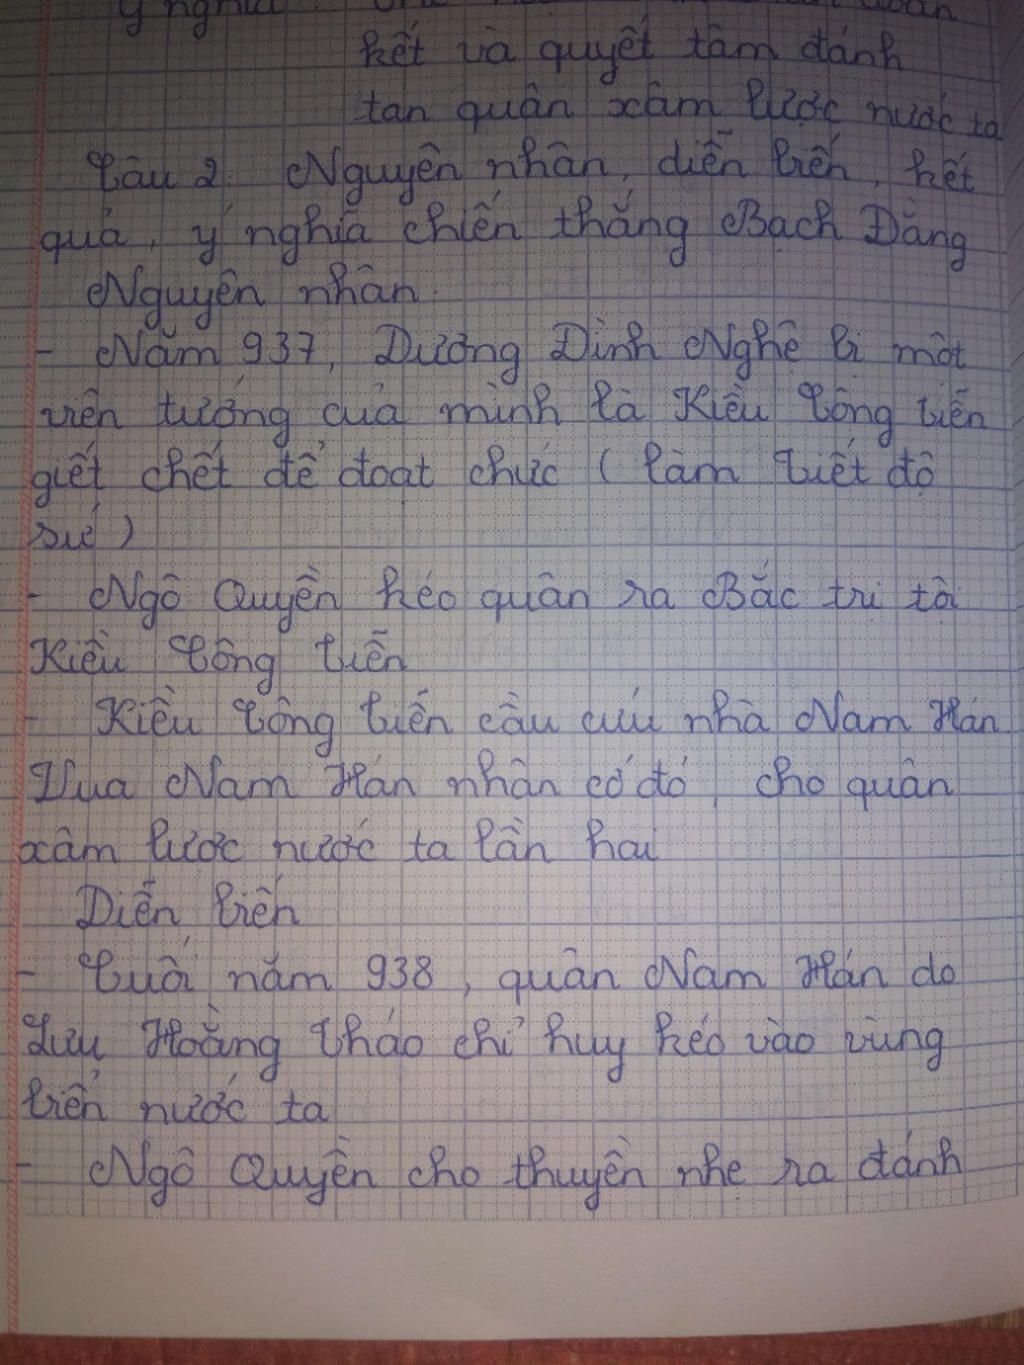 ý nghĩa
kết và quyết tâm đánh
tan quân xâm lược nước ta
Câu 2. Nguyên nhân, diễn biến, kết
quả, ý nghĩa chiến thắng Bạch Đằng
Nguyên nhân.
- Năm 937, Dương Đình Nghệ bị một
viên tướng của mình là Kiều Công Tiễn
giết chết để đoạt chức (làm Tiết độ
sứ)
- Ngô Quyền kéo quân ra Bắc trị tội
Kiều Công Tiễn
- Kiều Công Tiễn cầu cứu nhà Nam Hán.
Vua Nam Hán nhân cớ đó, cho quân
xâm lược nước ta lần hai
Diễn biến
- Cuối năm 938, quân Nam Hán do
Lưu Hoằng Tháo chỉ huy kéo vào vùng
biển nước ta
- Ngô Quyền cho thuyền nhẹ ra đánh